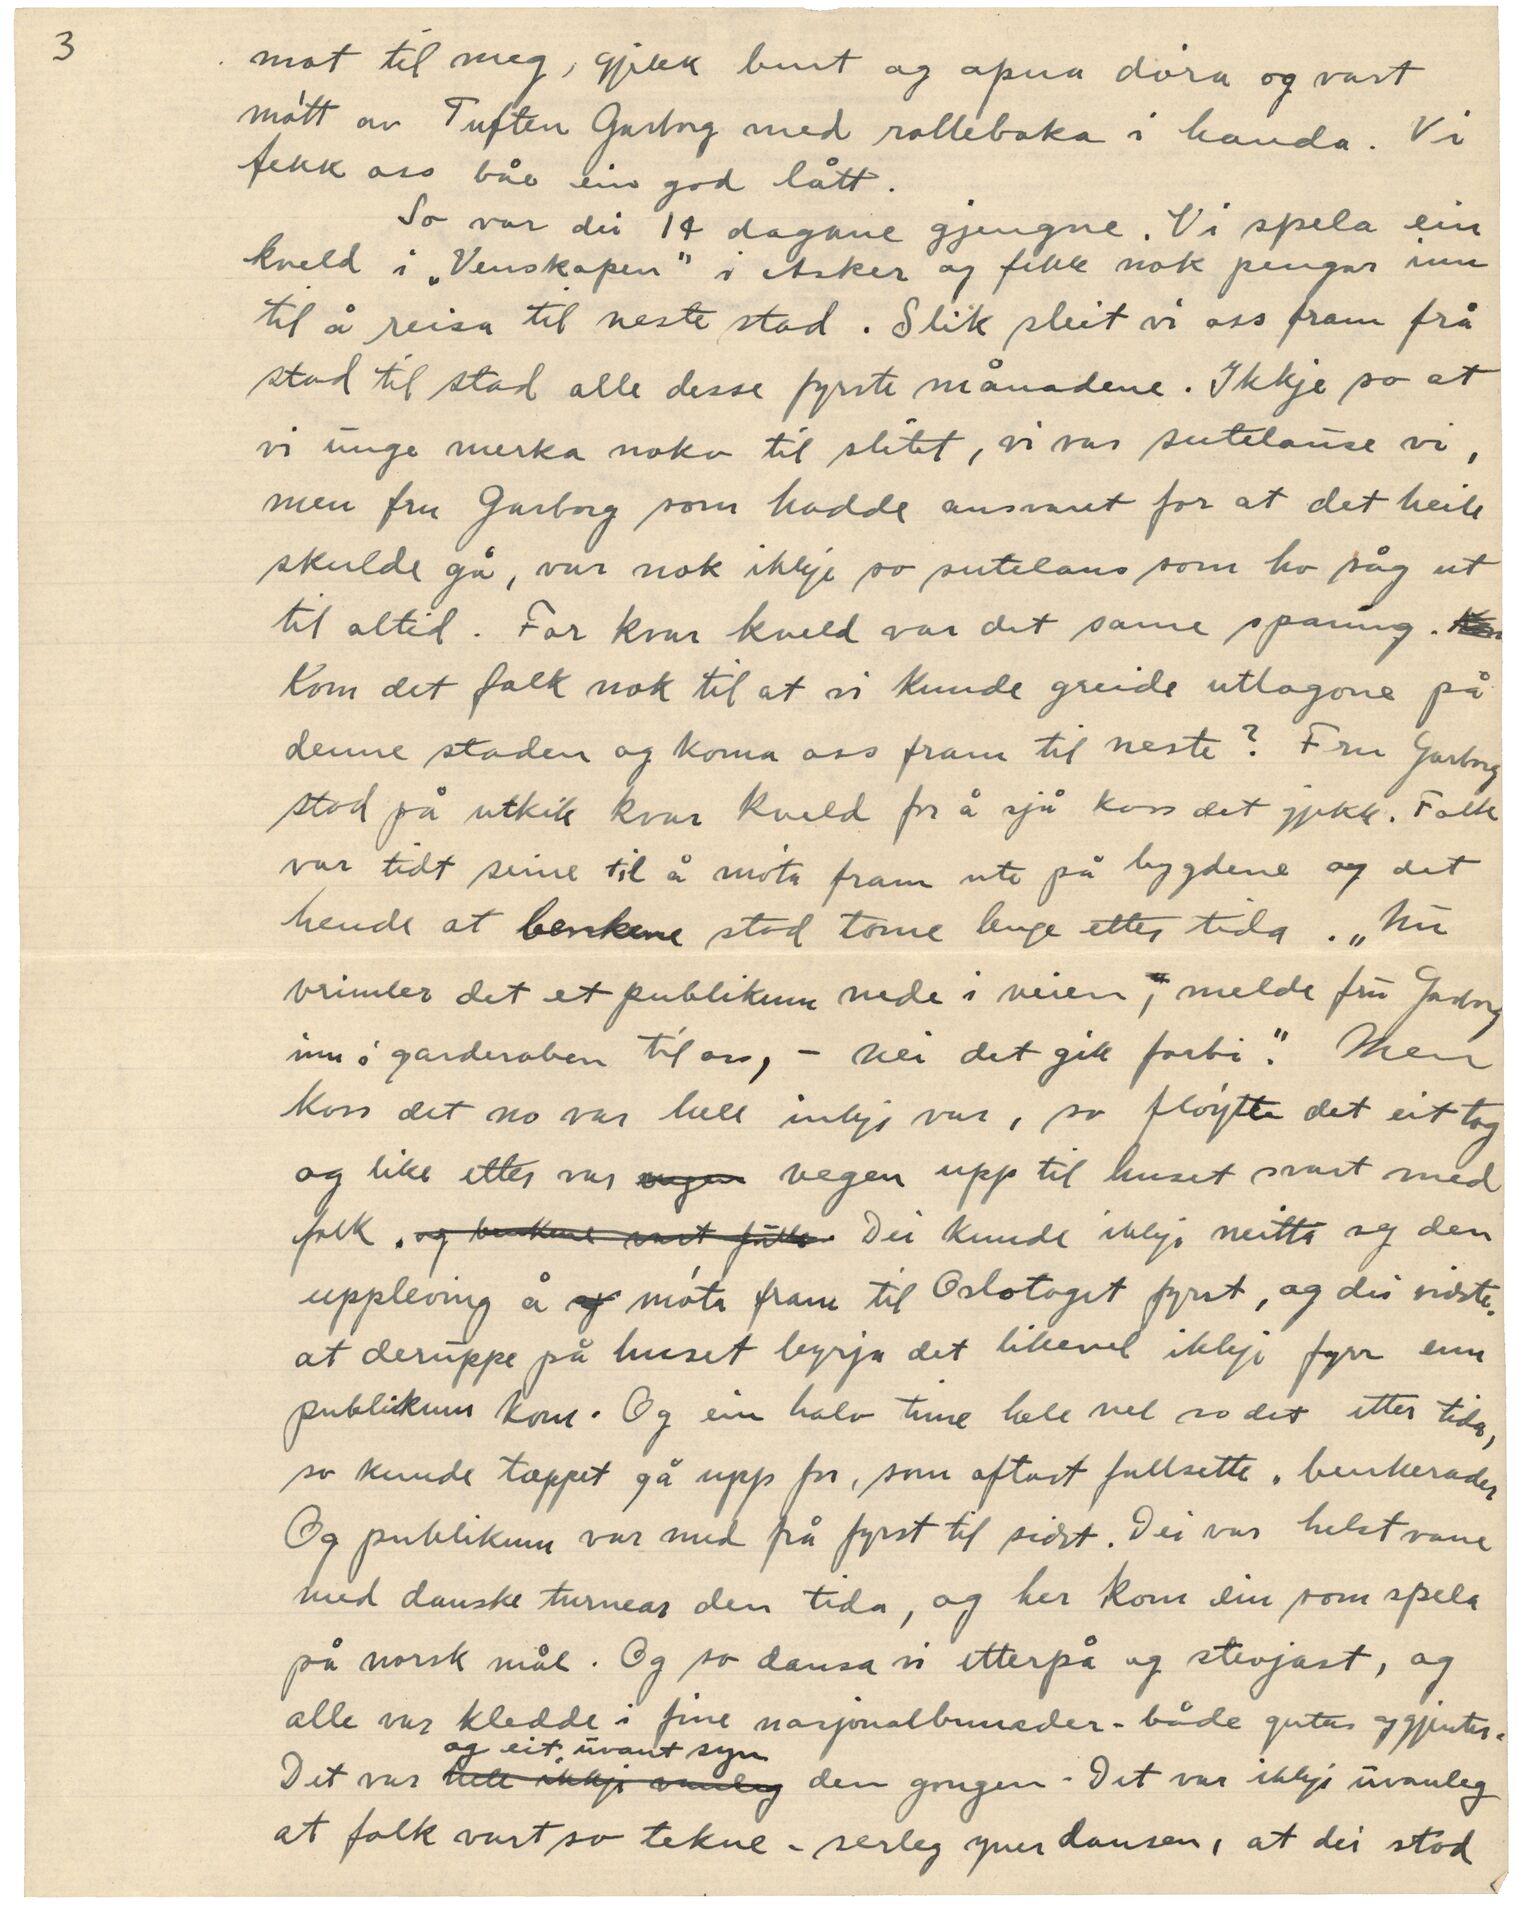 3
mot til meg, gjekk burt og opna döra og vart
mött av Tuften Garborg med rolleboka i handa. Vi
fekk oss båe ein god lått.
So var dei 14 dagane gjengne. Vi spela ein
kveld i „Venskapen" i Asker og fekk nok pengar inn
til å reisa til neste stad. Slik sleit vi oss fram frå
stad til stad alle desse fyrste månadene. Ikkje so at
vi unge merka noko til slitet, vi var sutelause vi,
men fru Garborg som hadde ansvaret for at det heile
skulde gå, var nok ikkje so sutelaus som ho såg ut
til altid. For kvar kveld var det same spaning. ~~Kom~~
Kom det folk nok til at vi kunde greide utlogone på
denne staden og koma oss fram til neste? Fru Garborg
stod på utkik kvar kveld for å sjå koss det gjekk. Folk
var tidt seine til å möta fram ute på bygdene og det
hende at benkene stod tome lenge etter tida. „Nu
vrimler det et publikum nede i veien", melde fru Garborg
inn i garderoben til oss, – nei det gik forbi". Men
koss det no var hell inkje var, so flöytte det eit tog
og like etter var ~~vegen~~ vegen upp til huset svart med
folk. ~~og benkene vart fulle.~~ Dei kunde ikkje neitta seg den
uppleving å möta fram til Oslotoget fyrst, og dei visste.
at deruppe på huset byrja det likevel ikkje fyrr enn
publikum kom. Og ein halv time hell vel so det etter tida,
so kunde tæppet gå upp for, som oftast fullsette. benkerader
Og publikum var med frå fyrst til sidst. Dei var helst vane
med danske turnear den tida, og her kom ein som spela
på norsk mål. Og so dansa vi etterpå og stevjast, og
alle var kledde i fine nasjonalbunader – både gutar og gjenter.
og eit uvant syn
Det var ~~hell ikkje vanleg~~ den gongen – Det var ikkje uvanleg
at folk vart so tekne – serleg yver dansen, at dei stod